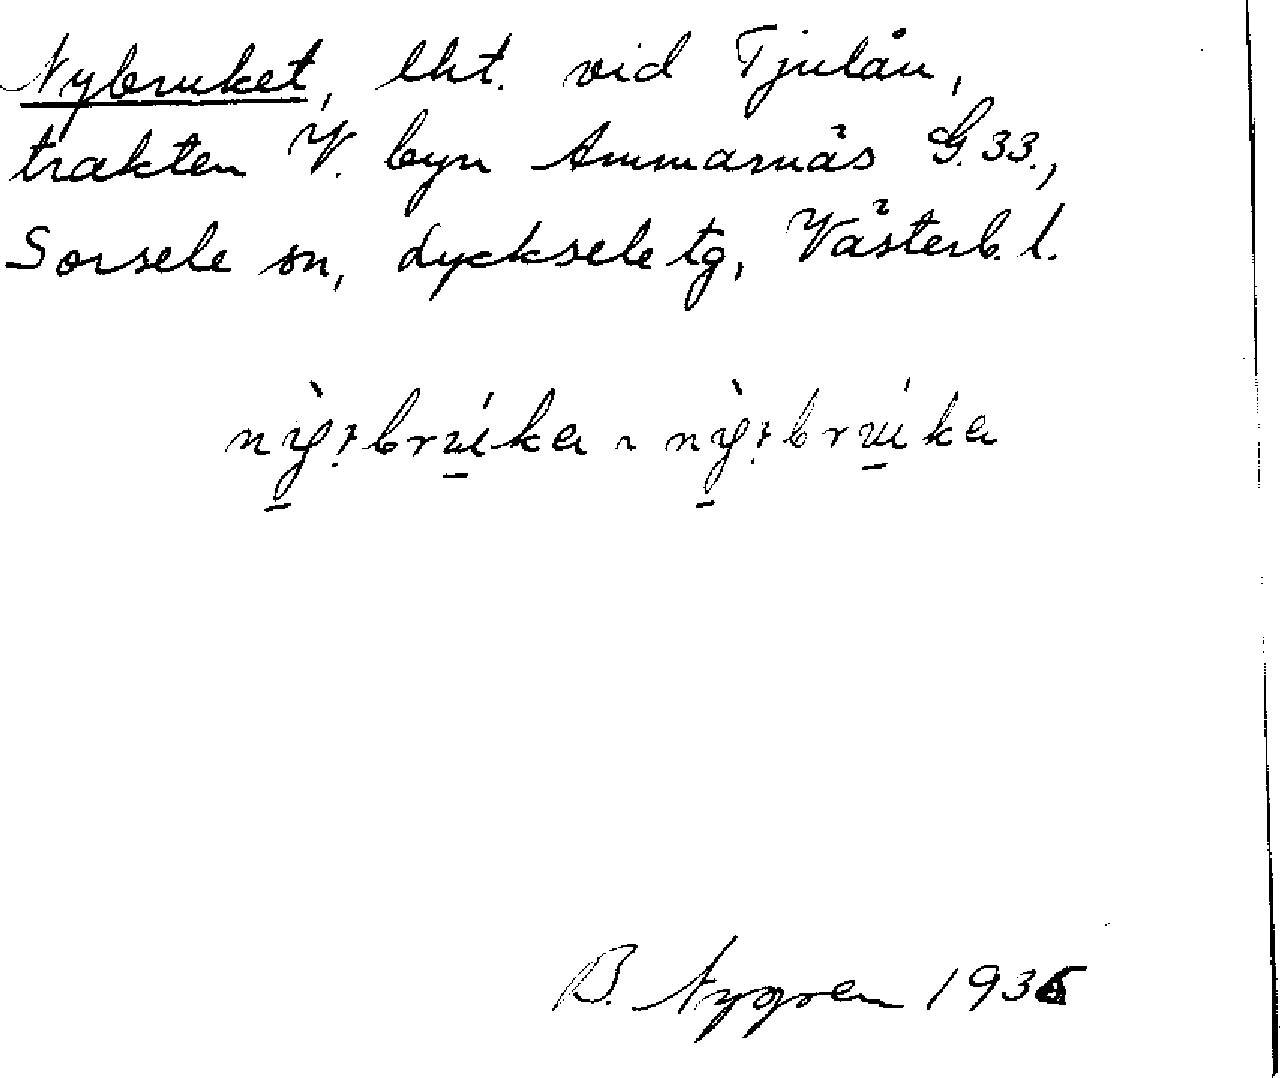 Nybruket, lht. vid Tjulån,
trakten V. byn Ammarnäs G. 33.,
Sorsele sn, Lycksele tg, Västerb. l.
B. Nygren 1935